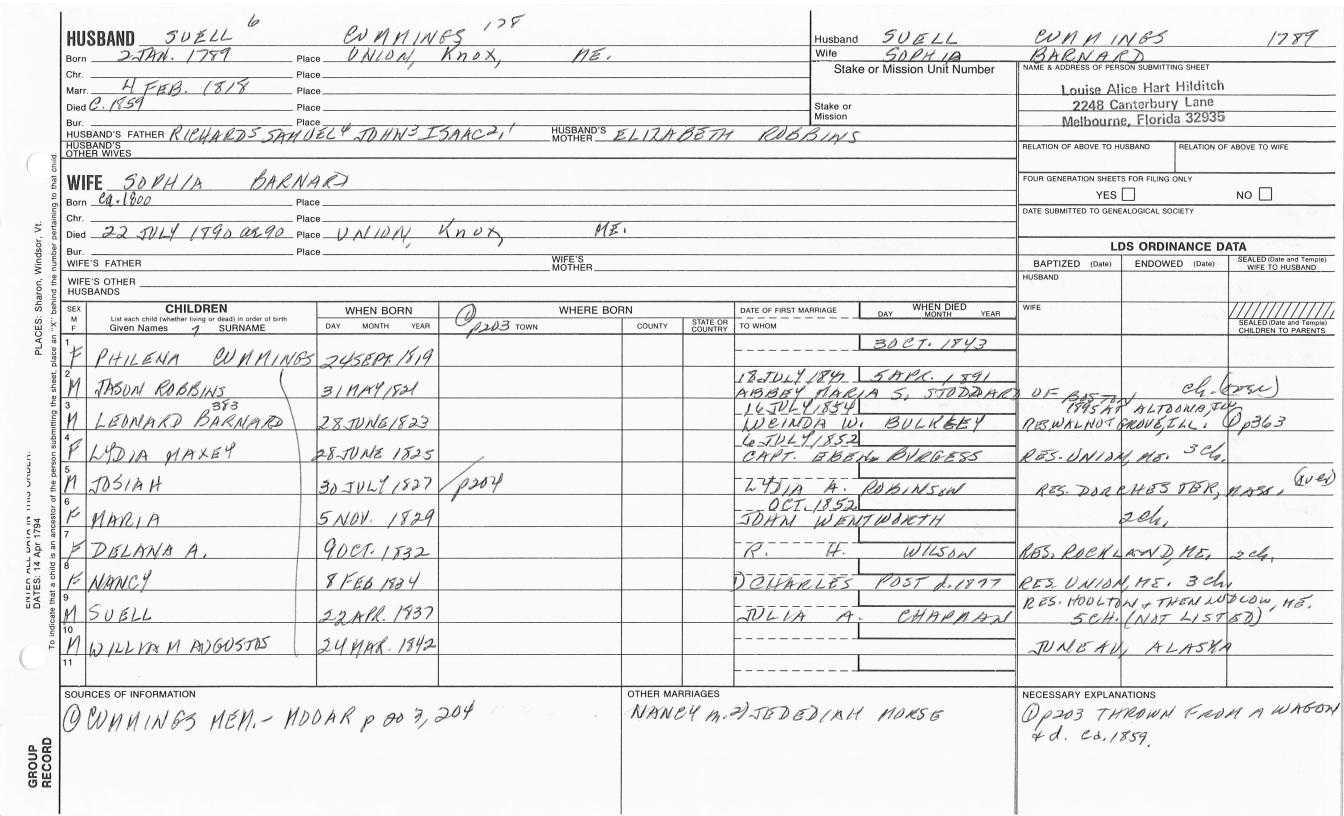 HUSBAND SUELL 6 CUMMINGS 178
Born 2 JAN. 1789 Place UNION, Knox, ME.
Chr. Place
Marr. 4 FEB. 1818 Place
Died C. 1859 Place
Bur. Place
HUSBAND'S FATHER RICHARD5 SAMUEL4 JOHN3 ISAAC2,1 HUSBAND'S MOTHER ELIZABETH ROBBINS
HUSBAND'S OTHER WIVES
Husband SUELL CUMMINGS 1789
Wife SOPHIA BARNARD
Stake or Mission Unit Number
Stake or Mission
NAME & ADDRESS OF PERSON SUBMITTING SHEET
Louise Alice Hart Hilditch
2248 Canterbury Lane
Melbourne, Florida 32935
RELATION OF ABOVE TO HUSBAND RELATION OF ABOVE TO WIFE
FOUR GENERATION SHEETS FOR FILING ONLY
YES NO
DATE SUBMITTED TO GENEALOGICAL SOCIETY
WIFE SOPHIA BARNARD
Born ca. 1800 Place
Chr. Place
Died 22 JULY 1890 ae 90 Place UNION, Knox, ME.
Bur. Place
WIFE'S FATHER WIFE'S MOTHER
WIFE'S OTHER HUSBANDS
LDS ORDINANCE DATA
BAPTIZED (Date) ENDOWED (Date) SEALED (Date and Temple) WIFE TO HUSBAND
HUSBAND
WIFE
SEALED (Date and Temple) CHILDREN TO PARENTS
SEX M F
CHILDREN
List each child (whether living or dead) in order of birth
Given Names 7 SURNAME
WHEN BORN
DAY MONTH YEAR
WHERE BORN
① p203 TOWN COUNTY STATE OR COUNTRY
DATE OF FIRST MARRIAGE
TO WHOM
WHEN DIED
DAY MONTH YEAR
1 F PHILENA CUMMINGS 24 SEPT. 1819 3 OCT. 1843
2 M JASON ROBBINS 31 MAY 1821 18 JULY 5 APR. 1891
ABBEY MARIA S. STODDARD OF BOSTON ch. (over)
3 M LEONARD BARNARD 383 28 JUNE 1823 16 JULY 1854 1895 AT ALTOONA,
LUCINDA W. BULKLEY RES. WALNUT GROVE, ILL. ① p363
4 F LYDIA MAXEY 28 JUNE 1825 6 JULY 1852
CAPT. EBEN BURGESS RES. UNION, ME. 3 ch.
5 M JOSIAH 30 JULY 1827 p204 LYDIA A. ROBINSON RES. DORCHESTER, MASS. (over)
6 F MARIA 5 NOV. 1829 OCT. 1852
JOHN WENTWORTH 2 ch.
7 F DELANA A. 9 OCT. 1832 R. H. WILSON RES. ROCKLAND, ME. 2 ch.
8 F NANCY 8 FEB 1834 1) CHARLES POST d. 1877 RES. UNION, ME. 3 ch.
9 M SUELL 22 APR. 1837 JULIA A. CHAPMAN RES. HOULTON + THEN LUDLOW, ME.
5 CH. (NOT LISTED)
10 M WILLIAM AUGUSTUS 24 MAR. 1842 JUNEAU, ALASKA
11
SOURCES OF INFORMATION
① CUMMINGS MEM. - MOOAR p 203, 204
OTHER MARRIAGES
NANCY m. 2) JEDEDIAH MORSE
NECESSARY EXPLANATIONS
① p203 THROWN FROM A WAGON
+ d. ca. 1859.
ENTER ALL DATA IN THIS ORDER:
DATES: 14 Apr 1794
PLACES: Sharon, Windsor, Vt.
To indicate that a child is an ancestor of the person submitting the sheet, place an "X" behind the number pertaining to that child.
GROUP RECORD